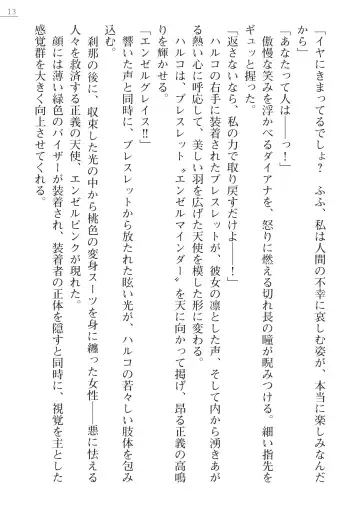 13
「イヤにきまってるでしょ？　ふふ、私は人間の不幸に哀しむ姿が、本当に楽しみなんだ
から」
「あなたって人は――っ！」
傲慢な笑みを浮かべるダイアナを、怒りに燃える切れ長の瞳が睨みつける。細い指先を
ギュッと握った。
「返さないなら、私の力で取り戻すだけよ――！」
ハルコの右手に装着されたブレスレットが、彼女の凛とした声、そして内から湧きあが
る熱い心に呼応して、美しい羽を広げた天使を模した形に変わる。
ハルコは、ブレスレット〝エンゼルマインダー〟を天に向かって掲げ、昂る正義の高鳴
りを輝かせる。
「エンゼルグレイス!!」
響いた声と同時に、ブレスレットから放たれた眩い光が、ハルコの若々しい肢体を包み
込む。
刹那の後に、収束した光の中から桃色の変身スーツを身に纏った女性――悪に怯える
人々を救済する正義の天使、エンゼルピンクが現れた。
顔には薄い緑色のバイザーが装着され、装着者の正体を隠すと同時に、視覚を主とした
感覚群を大きく向上させてくれる。